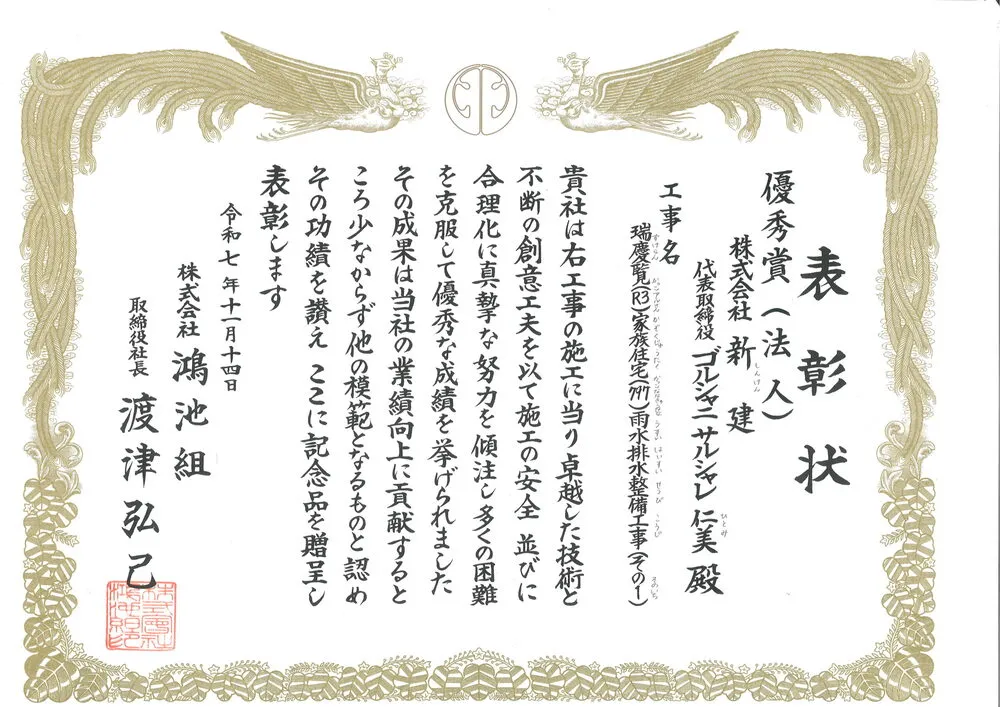 表彰状
優秀賞(法人)
株式会社 新建
しんけん
代表取締役 ゴルシャニ サルシャレ 仁美 殿
ひとみ
工事名
瑞慶覧(R3)家族住宅(797)雨水排水整備工事(その1)
貴社は右工事の施工に当り卓越した技術と
不断の創意工夫を以て施工の安全 並びに
合理化に真摯な努力を傾注し多くの困難
を克服して優秀な成績を挙げられました
その成果は当社の業績向上に貢献すると
ころ少なからず他の模範となるものと認め
その功績を讃え ここに記念品を贈呈し
表彰します
令和七年十一月十四日
株式会社 鴻池組
取締役社長 渡津弘己